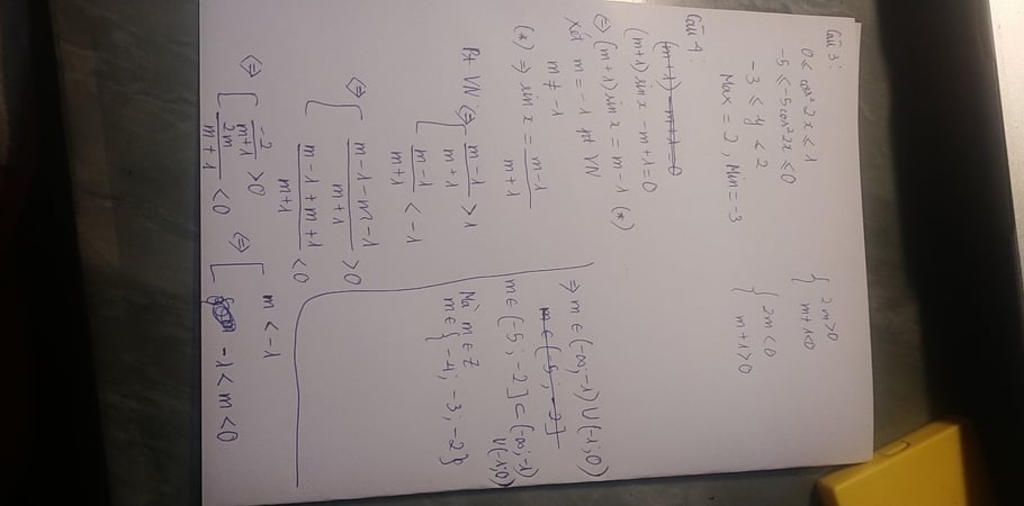 Câu 3:
0 < cos² 2x < 1
-5 ≤ -5cos²2x ≤ 0
-3 ≤ y < 2
Max = 2, Min = -3
Câu 4:
(m+1) - m+1 = 0
(m+1) sin x - m+1 = 0
⇔ (m+1) sin x = m-1 (*)
Xét m = -1 pt VN
m ≠ -1
(*) ⇒ sin x = m-1 / m+1
Pt VN ⇔ [ m-1 / m+1 > 1
m-1 / m+1 < -1
⇔ [ m-1-m-1 / m+1 > 0
m-1+m+1 / m+1 < 0
⇔ [ -2 / m+1 > 0
2m / m+1 < 0
⇔ [ m < -1
-1 > m < 0
{ 2m > 0
m+1 < 0
{ 2m < 0
m+1 > 0
⇒ m ∈ (-∞; -1) ∪ (-1; 0)
m ∈ (-5; -2] ⊂ (-∞; -1)
∪ (-1; 0)
Mà m ∈ Z
m ∈ { -4; -3; -2}